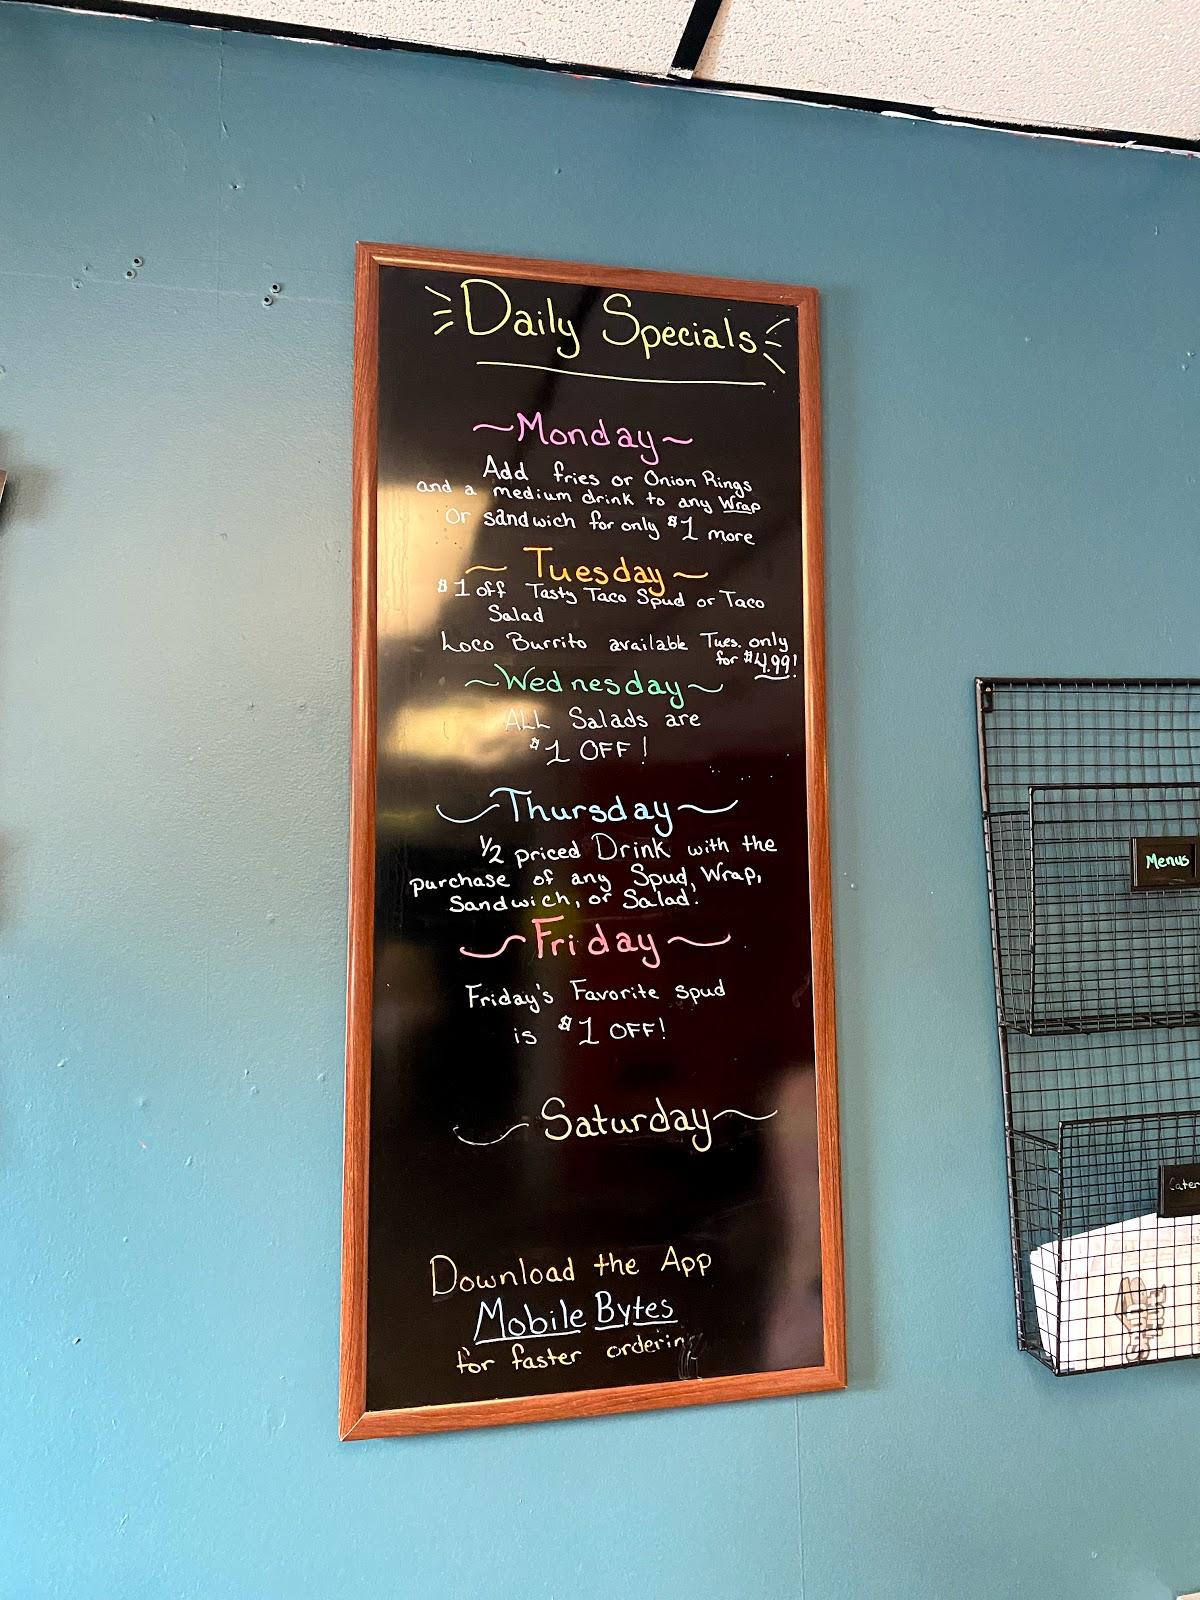 Daily Specials
~Monday~
Add fries or Onion Rings
and a medium drink to any Wrap
Or sandwich for only $1 more
~Tuesday~
$1 off Tasty Taco Spud or Taco
Salad
Loco Burrito available Tues. only
for $4.99!
~Wednesday~
ALL Salads are
$1 OFF!
~Thursday~
1/2 priced Drink with the
purchase of any Spud, Wrap,
Sandwich, or Salad.
~Friday~
Friday's Favorite Spud
is $1 OFF!
~Saturday~
Download the App
Mobile Bytes
for faster ordering
Menus
Cater